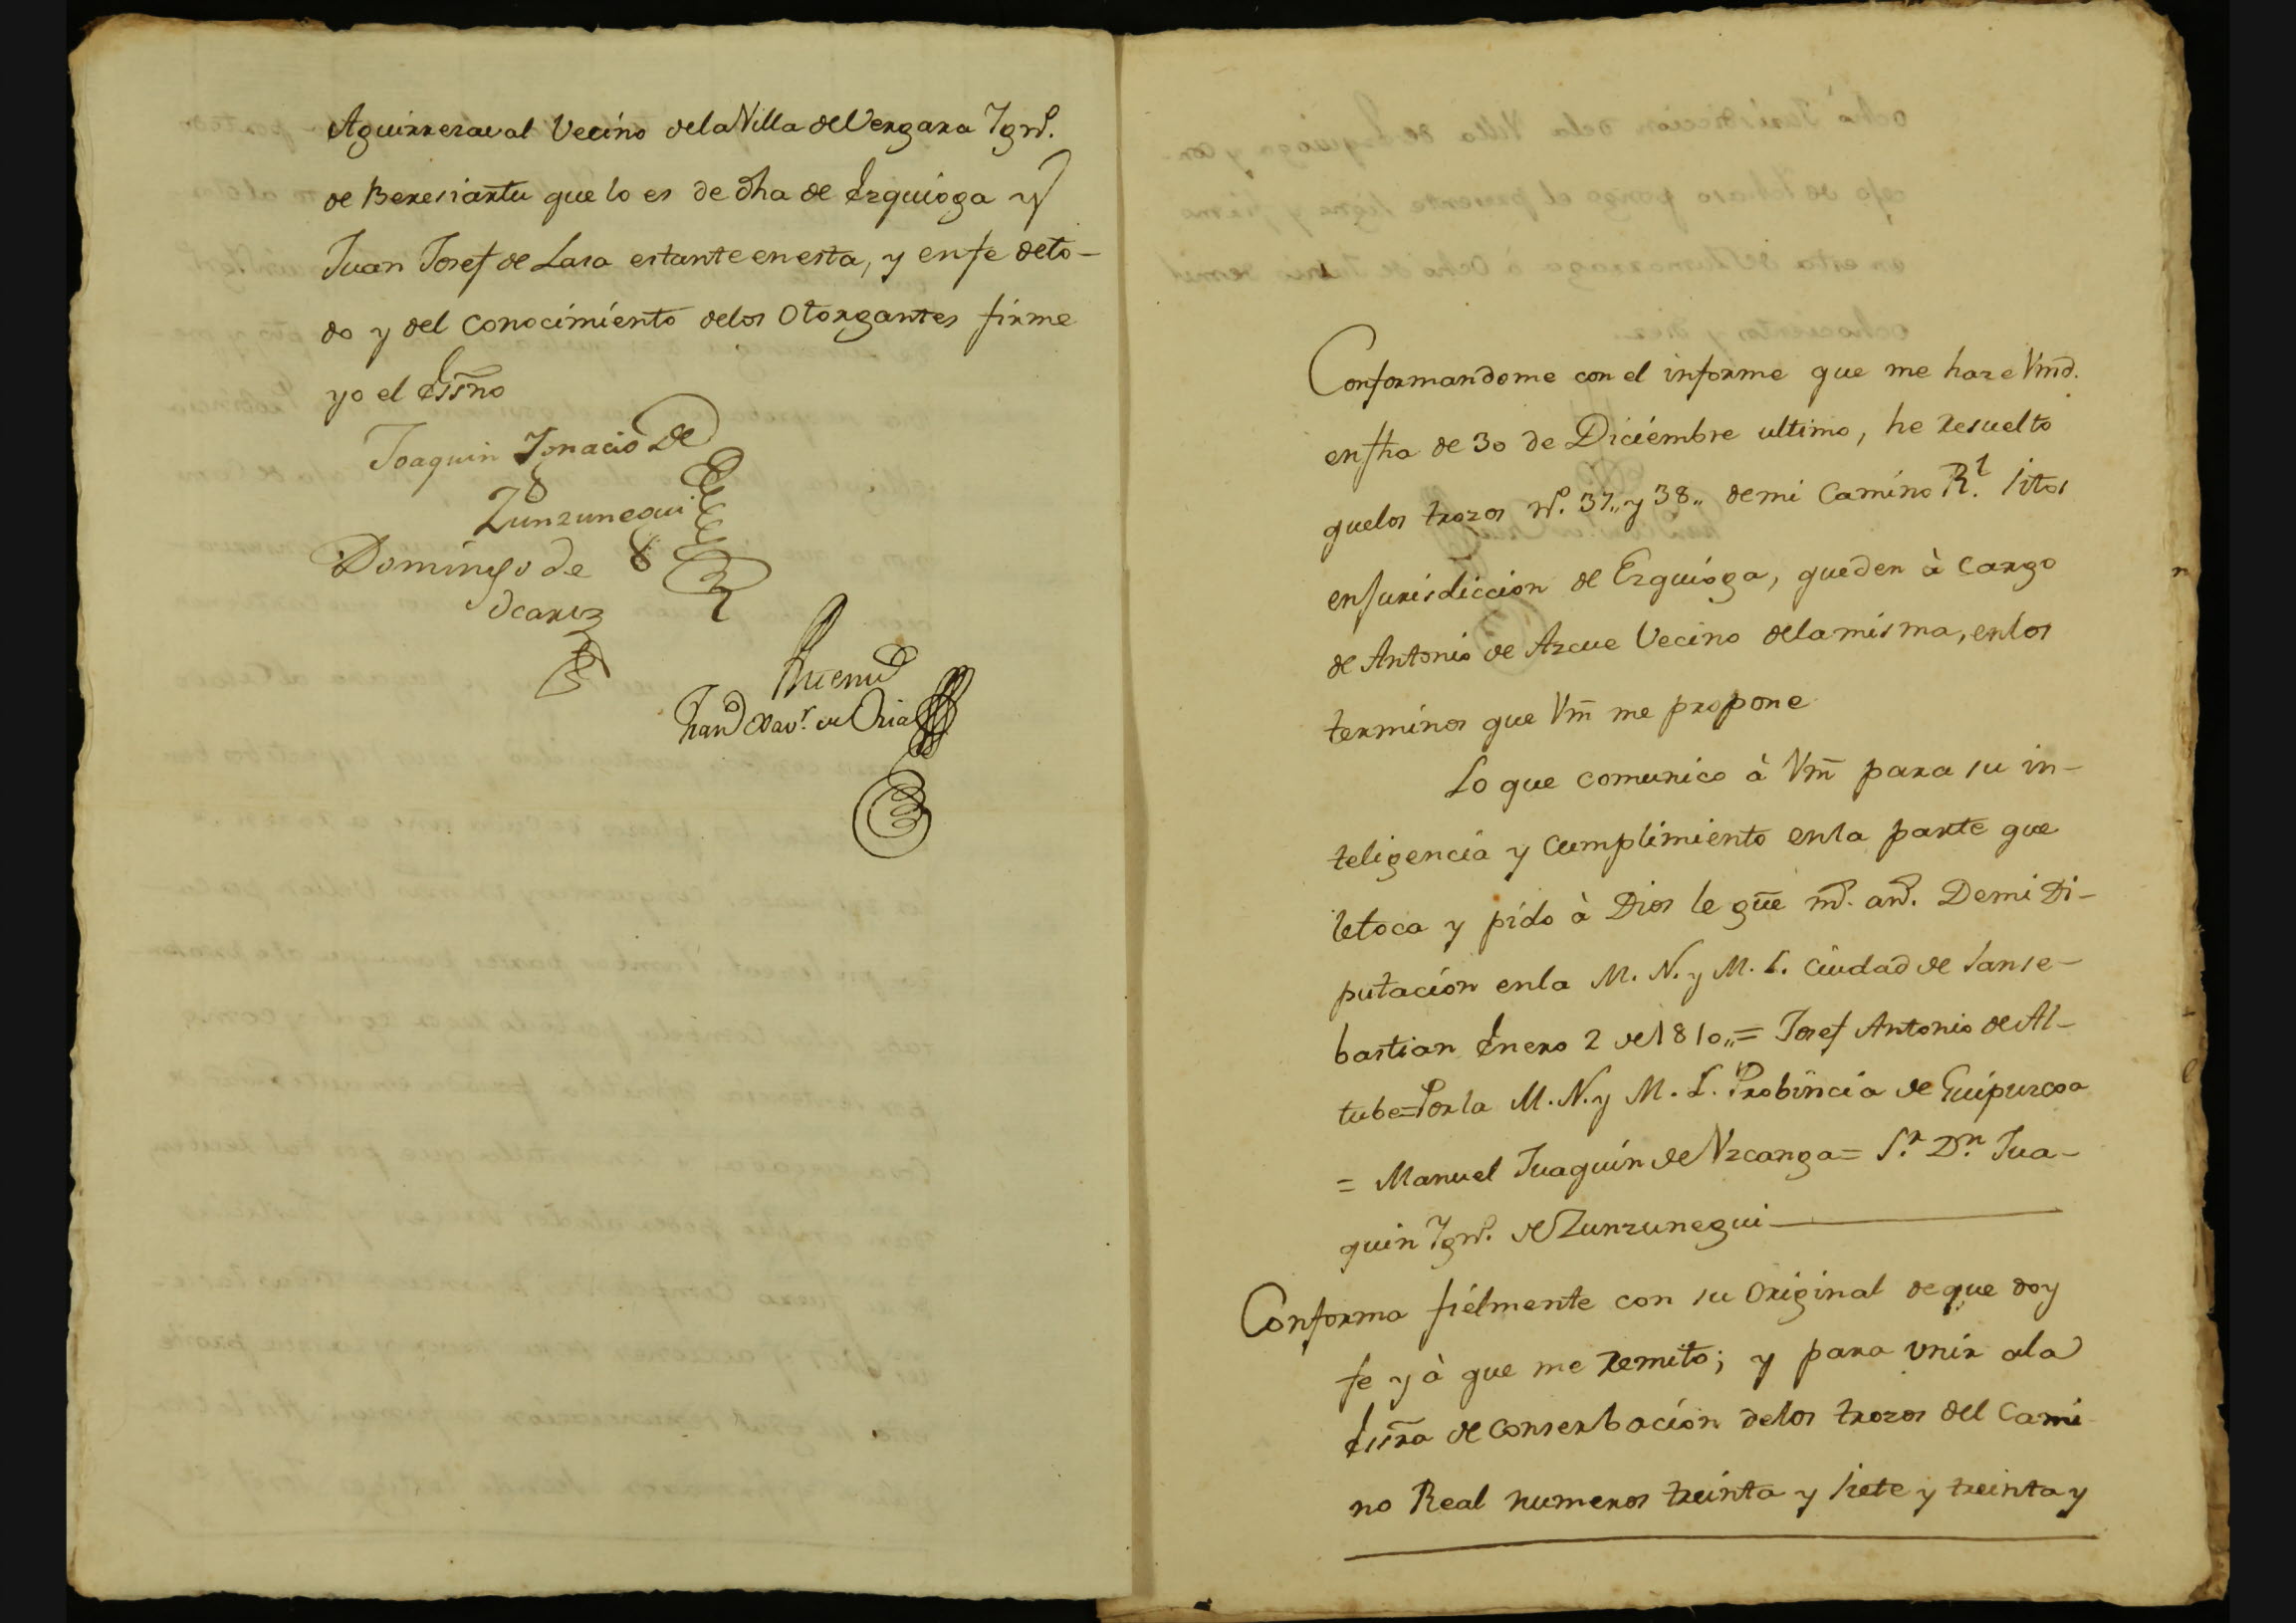 Aguirresaval Vecino dela Villa de Vergara Ign.º
de Beresiartu que lo es de dha de Ezquioga y
Juan Josef de Lasa estante en esta, y en fe de to-
do y del conocimiento delos Otorgantes firme
yo el Essño
Joaquin Ignacio de
Zunzunegui
Domingo de
Ant emi
Fran.co Xav.r de Oria
Conformandome con el informe que me haze Vmd.
en fha de 30 de Diciembre ultimo, he resuelto
que los trozos n.º 37,, y 38,, de mi Camino R.l sitos
en Jurisdiccion de Ezquioga, queden à cargo
de Antonio de Azcue Vecino dela misma, en los
terminos que Vm̃ me propone
Lo que comunico à Vm̃ para su in-
teligencia y cumplimiento en la parte que
le toca y pido à Dios le gũe m.s an.s De mi Di-
putación en la M. N. y M. L. Ciudad de San Se-
bastian Enero 2 de 1810,,= Josef Antonio de Al-
tube=Por la M. N. y M. L. Probincia de Guipuzcoa
= Manuel Juaquin de Uzcanga= S.r D.n Jua-
quin Ign.º de Zunzunegui
Conforma fielmente con su Original de que doy
fe y à que me remito; y para unir ala
Essr̃a de conserbación delos trozos del Cami
no Real numeros treinta y siete y treinta y